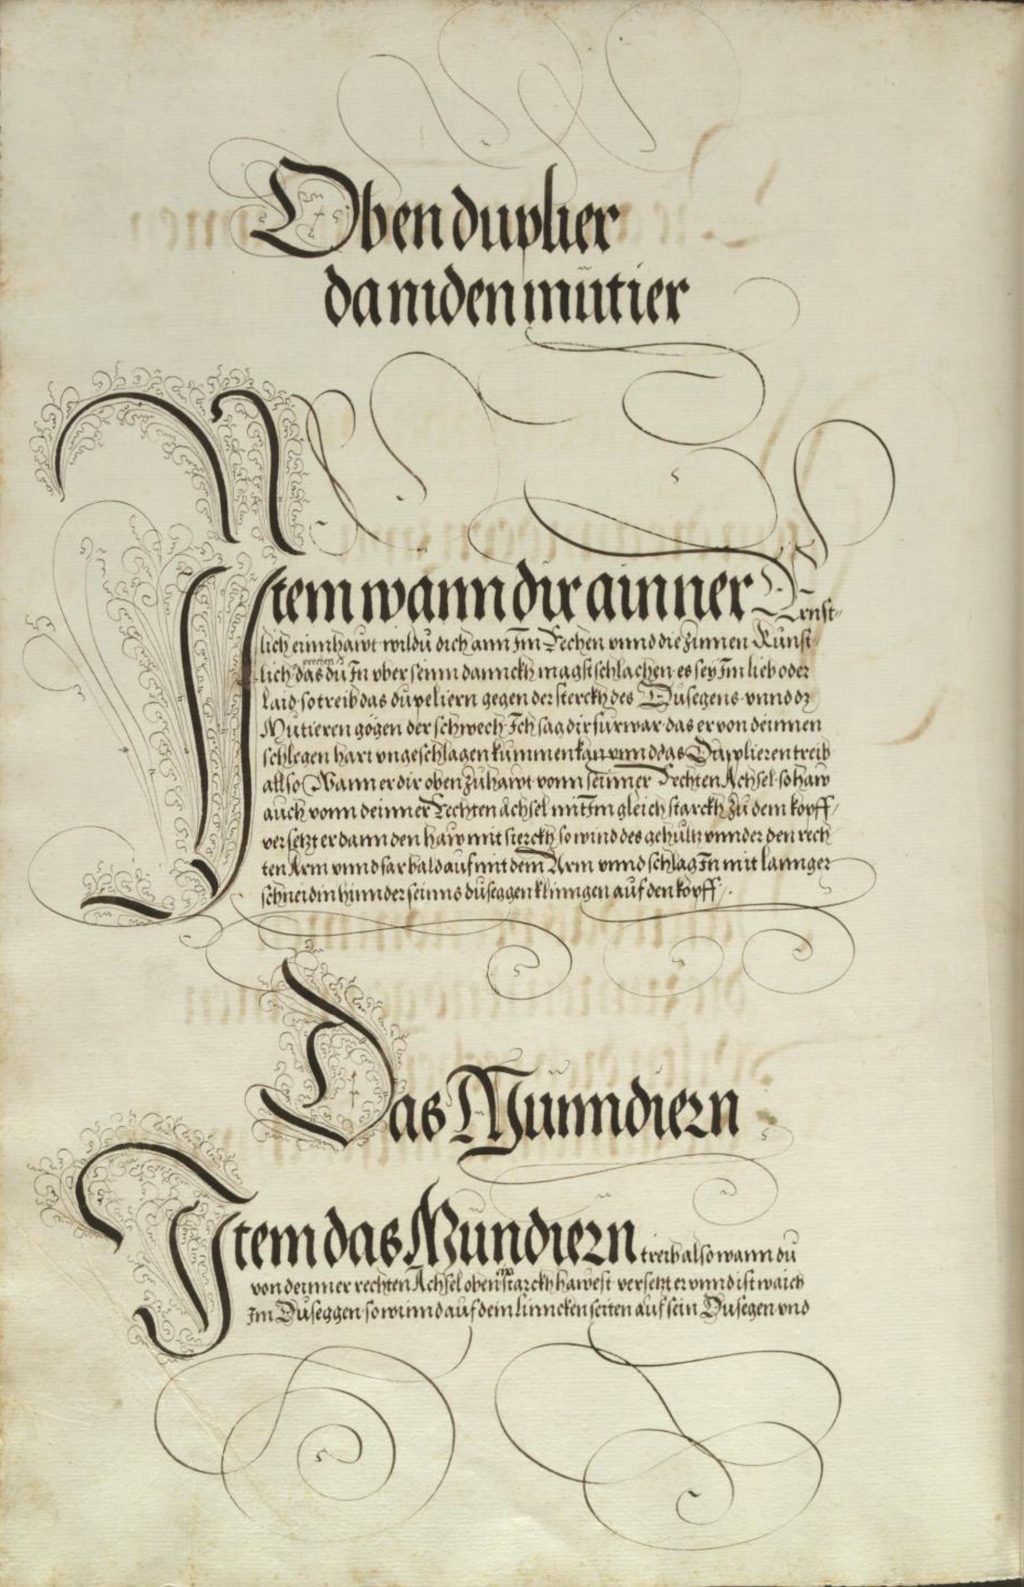 Oben duplier
damiden mutier
Item wann dir ainner Ernst-
lich einnhawt wildu dich ann Im Rechen vnnd die zinnen Künst-
prechen
lich das du In vber seinn dannckh magst schlachen es sey Im lieb oder
Laid so treib das dupeliern gegen der sterckh des Dusegens vnnd dz
Mutieren gegen der schwech Ich sag dir fur war das er von deinnen
schlegen hart vngeschlagen kummen kan vnnd das Dupplieren treib
allso Wann er dir oben zu hawt vonn seinner Rechten Achsel so haw
auch vonn deinner Rechten achsel mit Im gleich starckh zu dem kopff
versetzt er dann den haw mit sterckh so wind des gehultz vnnder den rech
ten Arm vnnd far bald auf mit dem Arm vnnd schlag In mit lannger
schneid in hinnder seinns duseggen klinngen auf den kopff.
Das Munndiern
Item das Mundiern treib also wann du
von deinner rechten Achsel oben starckh hawest versetzt er vnnd ist waich
Im Duseggen so winnd auf dein linncken seiten auf sein Dusegen vnd